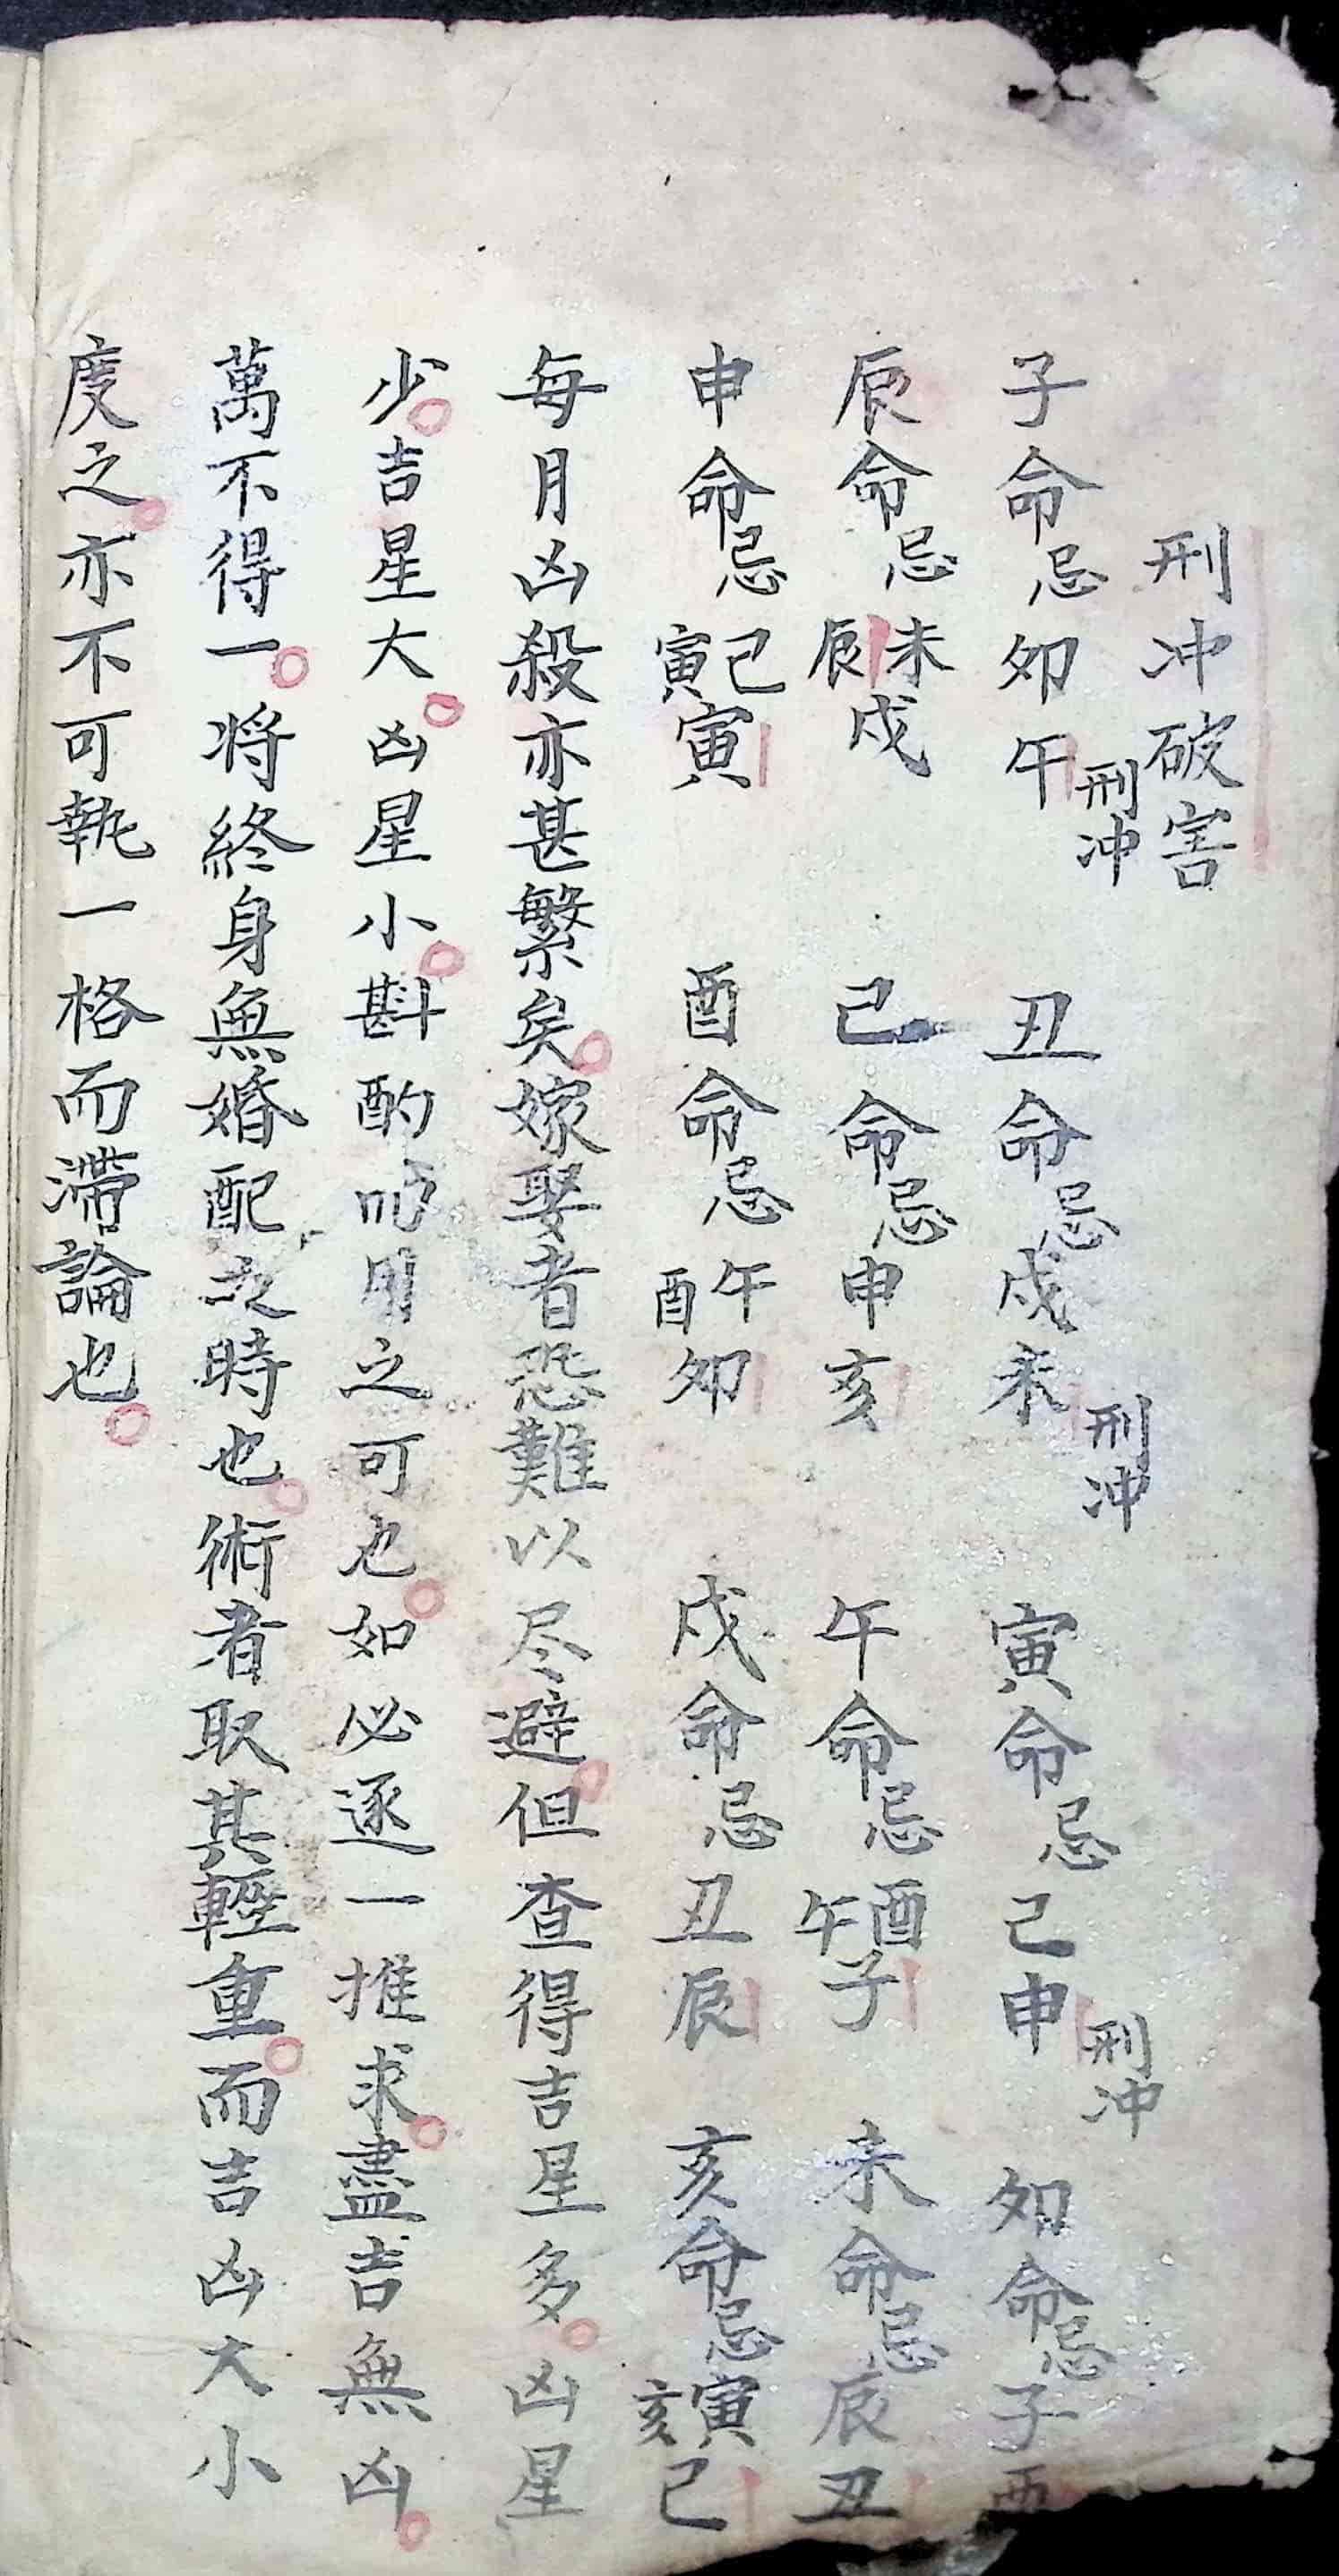 刑冲破害
子命忌夘午刑冲 丑命忌戍未刑冲 寅命忌己申刑冲 夘命忌子酉
辰命忌未辰戍 己命忌申亥 午命忌酉午子 未命忌辰丑
申命忌己寅寅 酉命忌午酉夘 戍命忌丑辰 亥命忌寅亥己
每月凶殺亦甚繁矣。嫁娶者恐難以尽避。但查得吉星多。凶星
少。吉星大。凶星小。斟酌而用之可也。如必逐一推求。盡吉無凶。
萬不得一。将終身無婚配之時也。術者取其輕重。而吉凶大小
度之。亦不可執一格而滯論也。